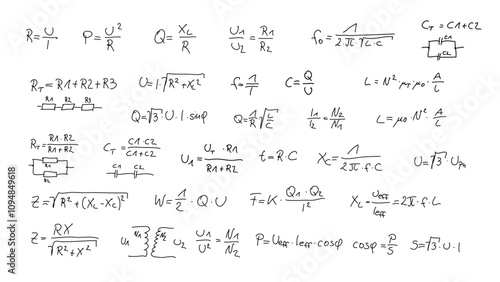 R=U/I P=U²/R Q=XL/R U1/U2=R1/R2 fo=1/2π·√L·C CT=C1+C2
C1
C2
RT=R1+R2+R3 U=I·√R²+X² f=1/T C=Q/U L=N²·μT·μo·A/L
R1 R2 R3
Q=√3·U·I·sinφ Q=1/R√L/C I1/I2=N2/N1 L=μo·N²·A/L
RT=R1·R2/R1+R2 CT=C1·C2/C1+C2 U1=UT·R1/R1+R2 t=R·C XC=1/2π·f·C U=√3·Uph
R1
R2
C1 C2
Z=√R²+(XL-XC)² W=1/2·Q·U F=K·Q1·Q2/r² XL=Ueff/Ieff=2π·f·L
Z=RX/√R²+X² U1 N1 N2 U2 U1/U2=N1/N2 P=Ueff·Ieff·cosφ cosφ=P/S S=√3·U·I
Adobe Stock | #1094849618